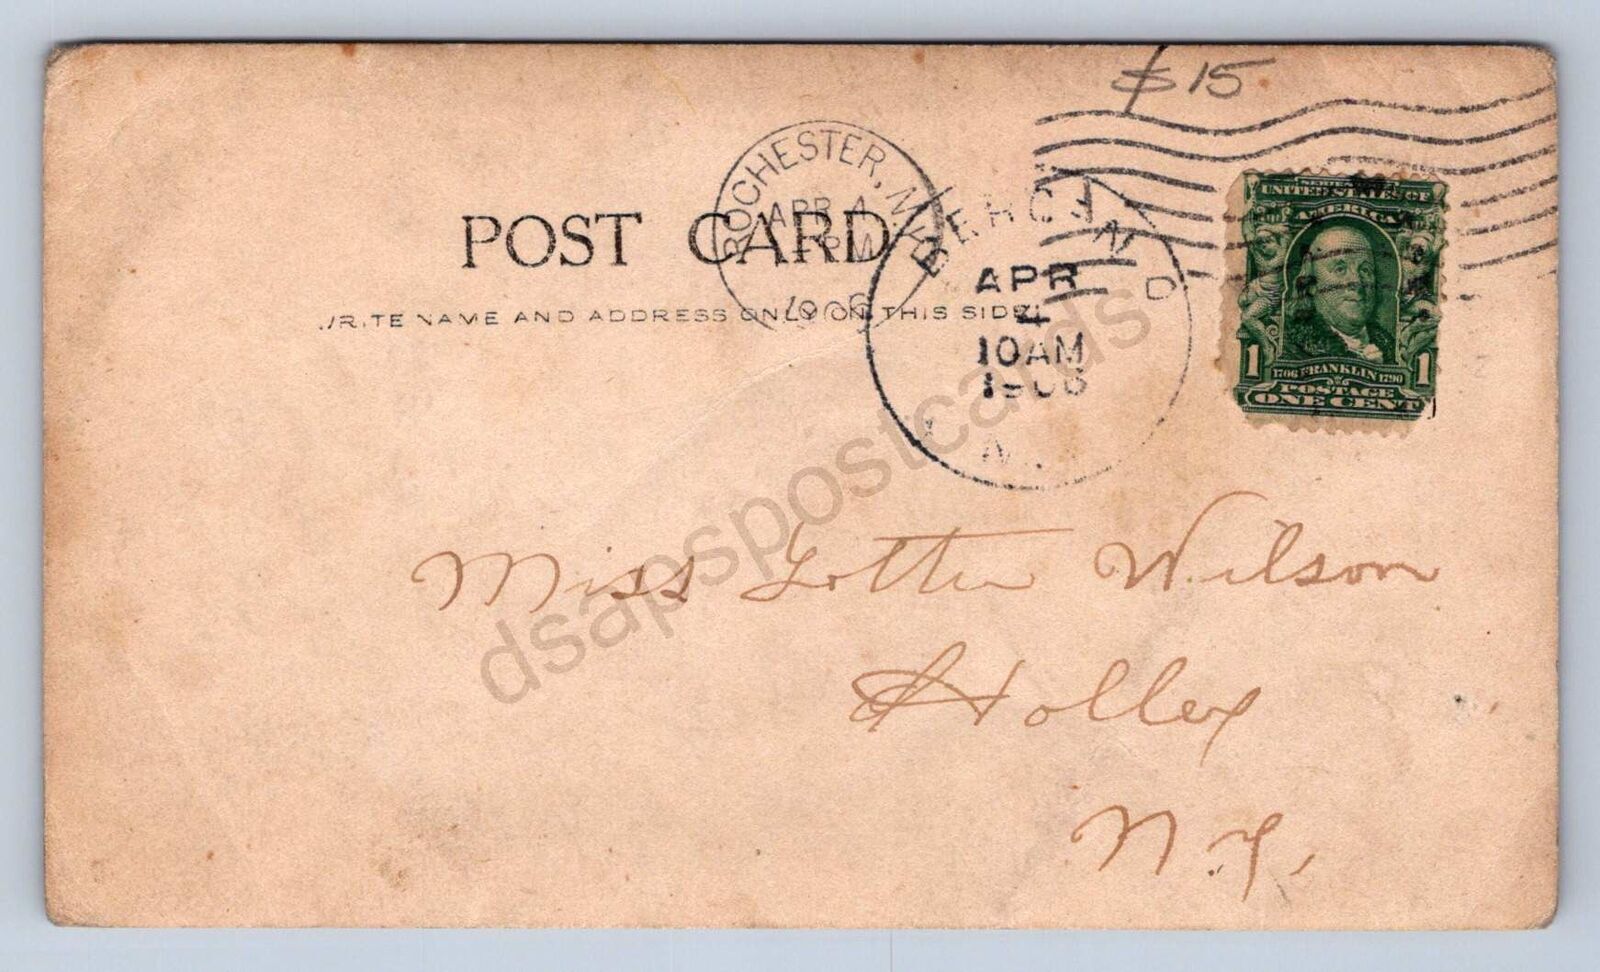 $15
ROCHESTER, N.Y.
APR 4
PM
1906
POST CARD
WRITE NAME AND ADDRESS ONLY ON THIS SIDE
APR
4
10 AM
1906
SERIES
UNITED STATES OF
AMERICA
1 1
1706 FRANKLIN 1790
POSTAGE
ONE CENT
Miss Lottie Wilson
Holley
N.Y.
dsapspostcards